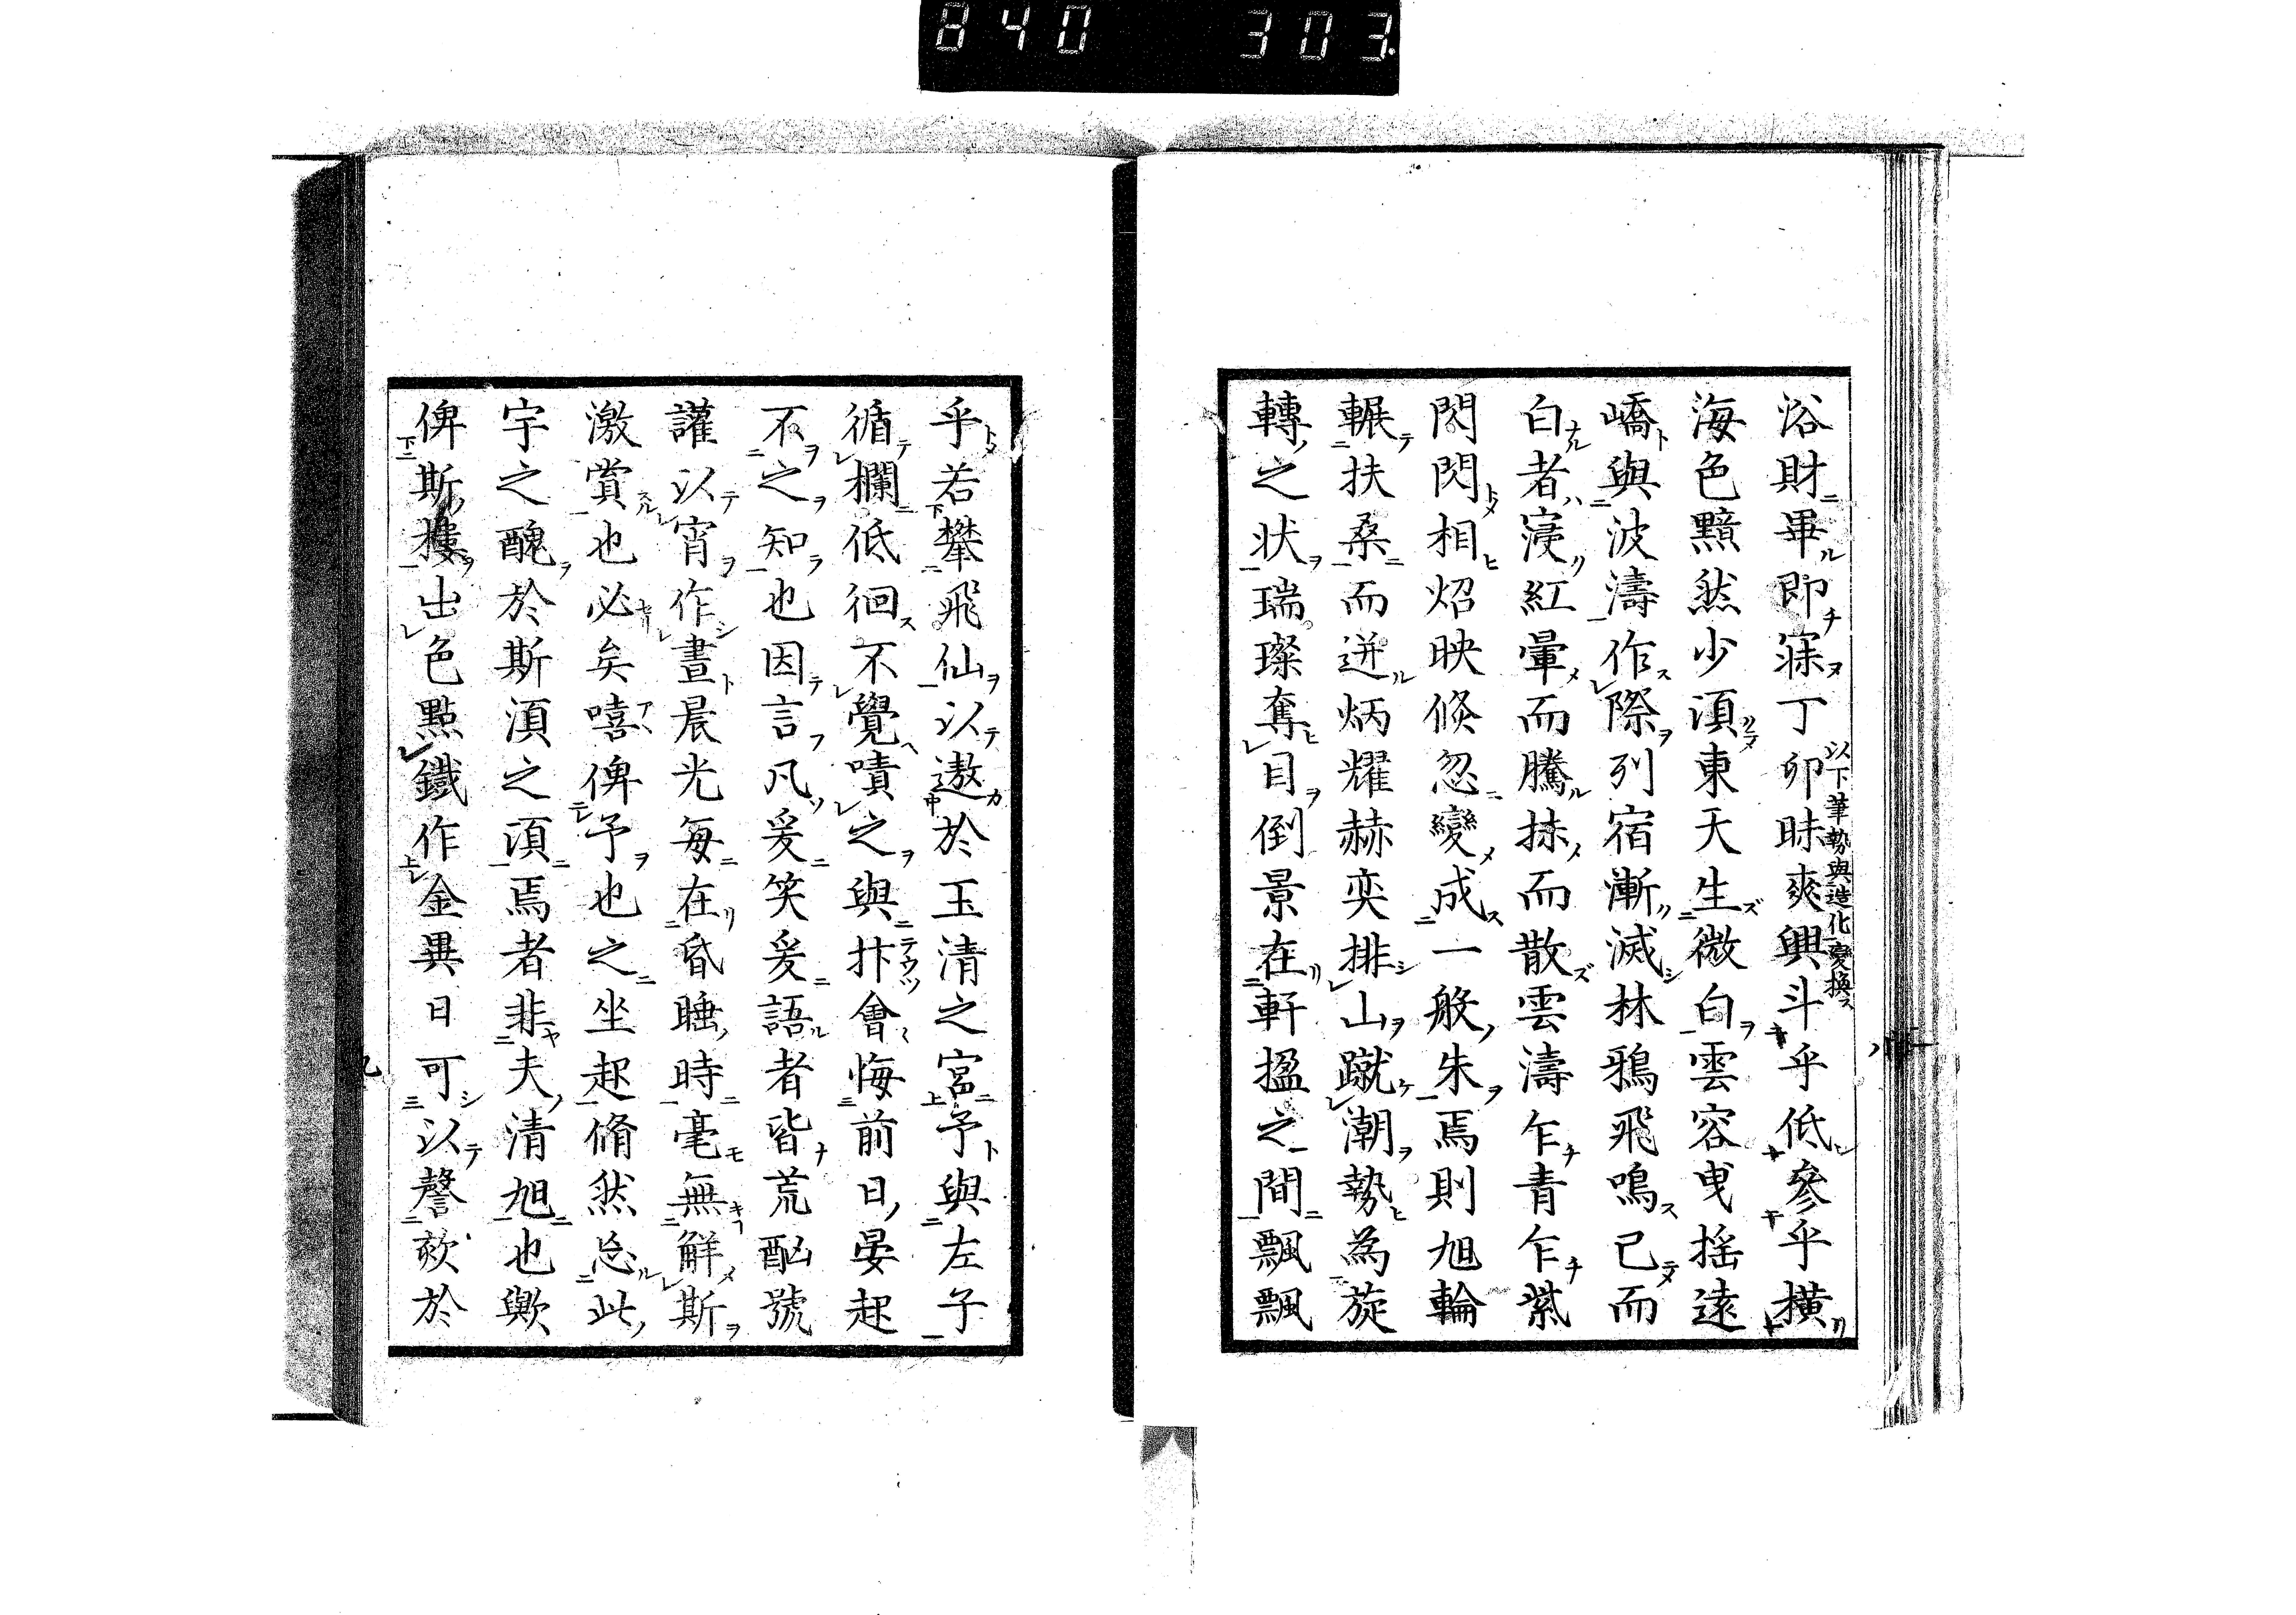 840 303
浴財畢即寐丁卯昧爽興斗乎低參乎橫
以下筆勢與造化變換ス
海色黯然少湏東天生微白雲容曳搖遠
嶠與波濤作際列宿漸滅林鴉飛鳴已而
白者寖紅暈而騰抹而散雲濤乍青乍紫
閃閃相炤映倏忽變成一般朱焉則旭輪
輾扶桑而迸炳燿赫奕排山蹴潮勢為旋
轉之状瑞璨奪目倒景在軒搵之間飄飄
乎若攀飛仙以遨於玉清之宮予與左子
循欄低徊不覺嘖之與抃會悔前日晏起
不之知也因言凡爰笑爰語者皆荒酗號
讙以宵作晝晨光每在昏睡時毫無觧斯
激賞也必矣嘻俾予也之坐起脩然忘此
宇之醜於斯湏之頃焉者非夫清旭也歟
俾斯樓出色點鐵作金異日可以謦欬於
九